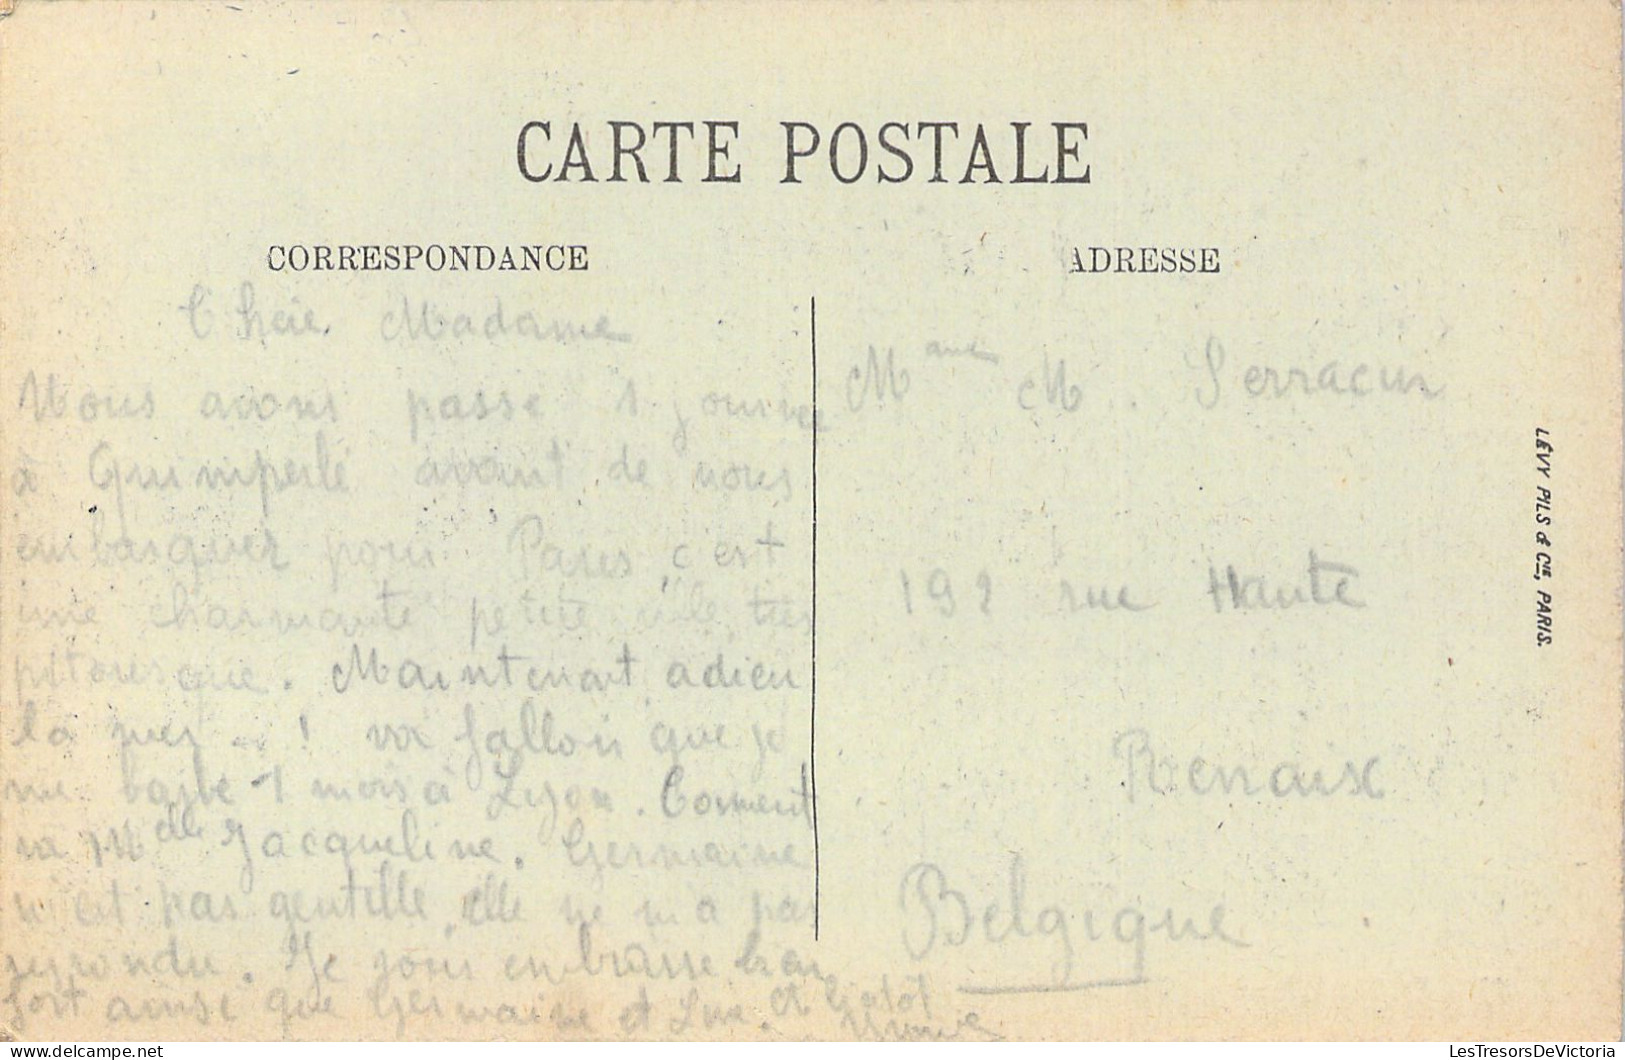 CARTE POSTALE
CORRESPONDANCE
Chère Madame
Nous avons passé 1 journée
à Quimperlé avant de nous
embarquer pour Paris, c'est
une charmante petite ville très
pitoresque. Maintenant adieu
la mer ...! va falloir que je
me 1 mois à Lyon. Comment
va Mdlle Jacqueline. Germaine
n'est pas gentille, elle ne m'a pas
repondu. Je vous embrasse bien
fort ainsi que Germaine et Luc. et
ADRESSE
Mme M.
192 rue Haute
Renaix
Belgique
LÉVY FILS & Cie, PARIS.
LesTresorsDeVictoria